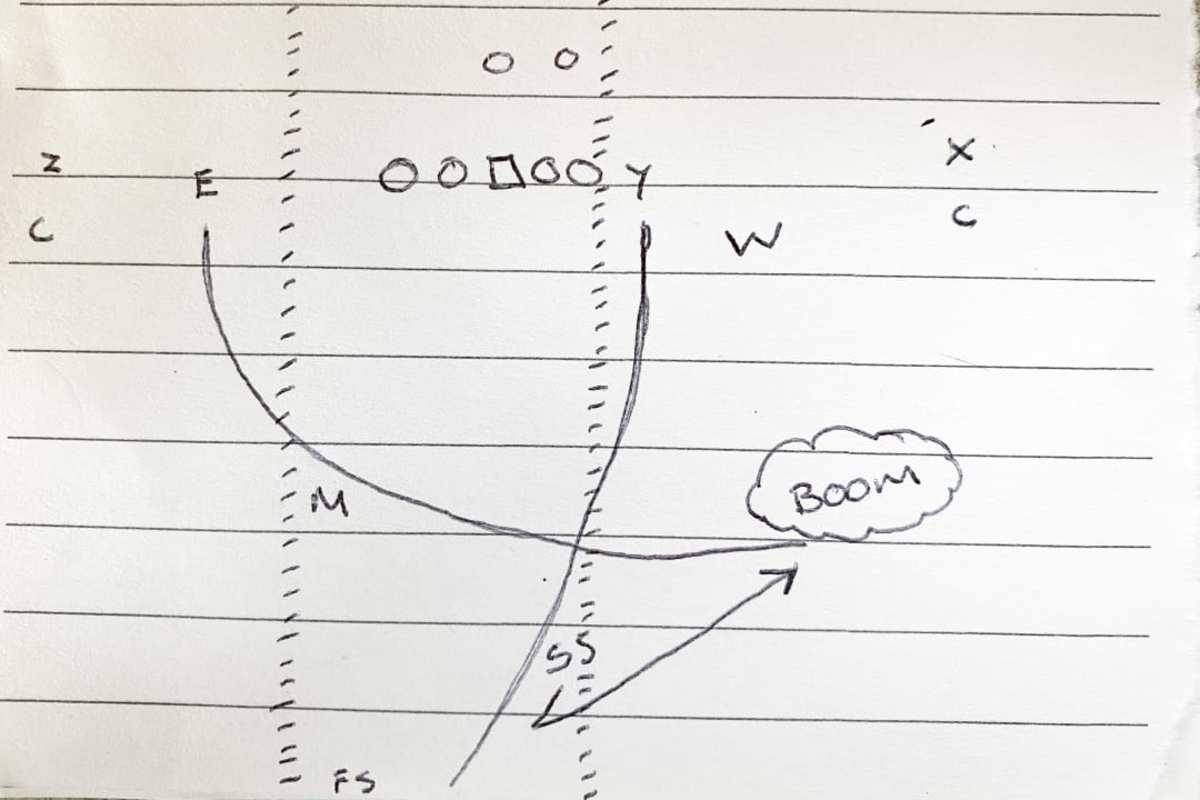 Z E Y X
C W C
BOOM
M
SS
FS